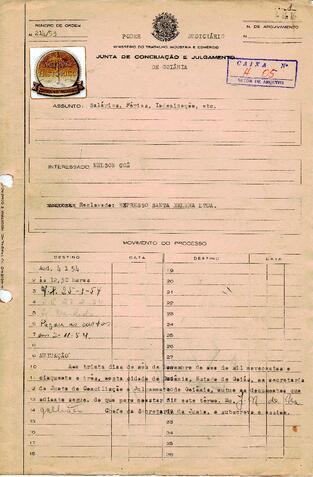 NÚMERO DE ORDEM
N. 224/53
PODER JUDICIÁRIO
N. DE ARQUIVAMENTO
MINISTÉRIO DO TRABALHO, INDÚSTRIA E COMÉRCIO
JUNTA DE CONCILIAÇÃO E JULGAMENTO
DE GOIÂNIA
CAIXA Nº
A-05
SETOR DE ARQUIVO
ASSUNTO: Salários, Férias, Indenização, etc.
INTERESSADO: NELSON
Reclamado: EXPRESSO SANTA HELENA LTDA.
MOVIMENTO DO PROCESSO
DESTINO DATA DESTINO DATA
1 Aud. 4 1 54 19
2 às 12,30 horas 20
3 25-1-54 21
4 22
5 23
6 Pagou as custas 24
7 em 2-11-54. 25
8 26
9 AUTUAÇÃO 27
10 Aos trinta dias do mês de dezembro de mil novecentos e
11 cinquenta e três, nesta cidade de Goiânia, Estado de Goiás, na secretaria
12 da Junta de Conciliação e Julgamento de Goiânia, autuo os documentos que
13 adiante segue, do que para constar fiz este termo. Eu,
14 Chefe da Secretaria da Junta, o subscrevo e assino.
15 33
16 34
17 35
18 36